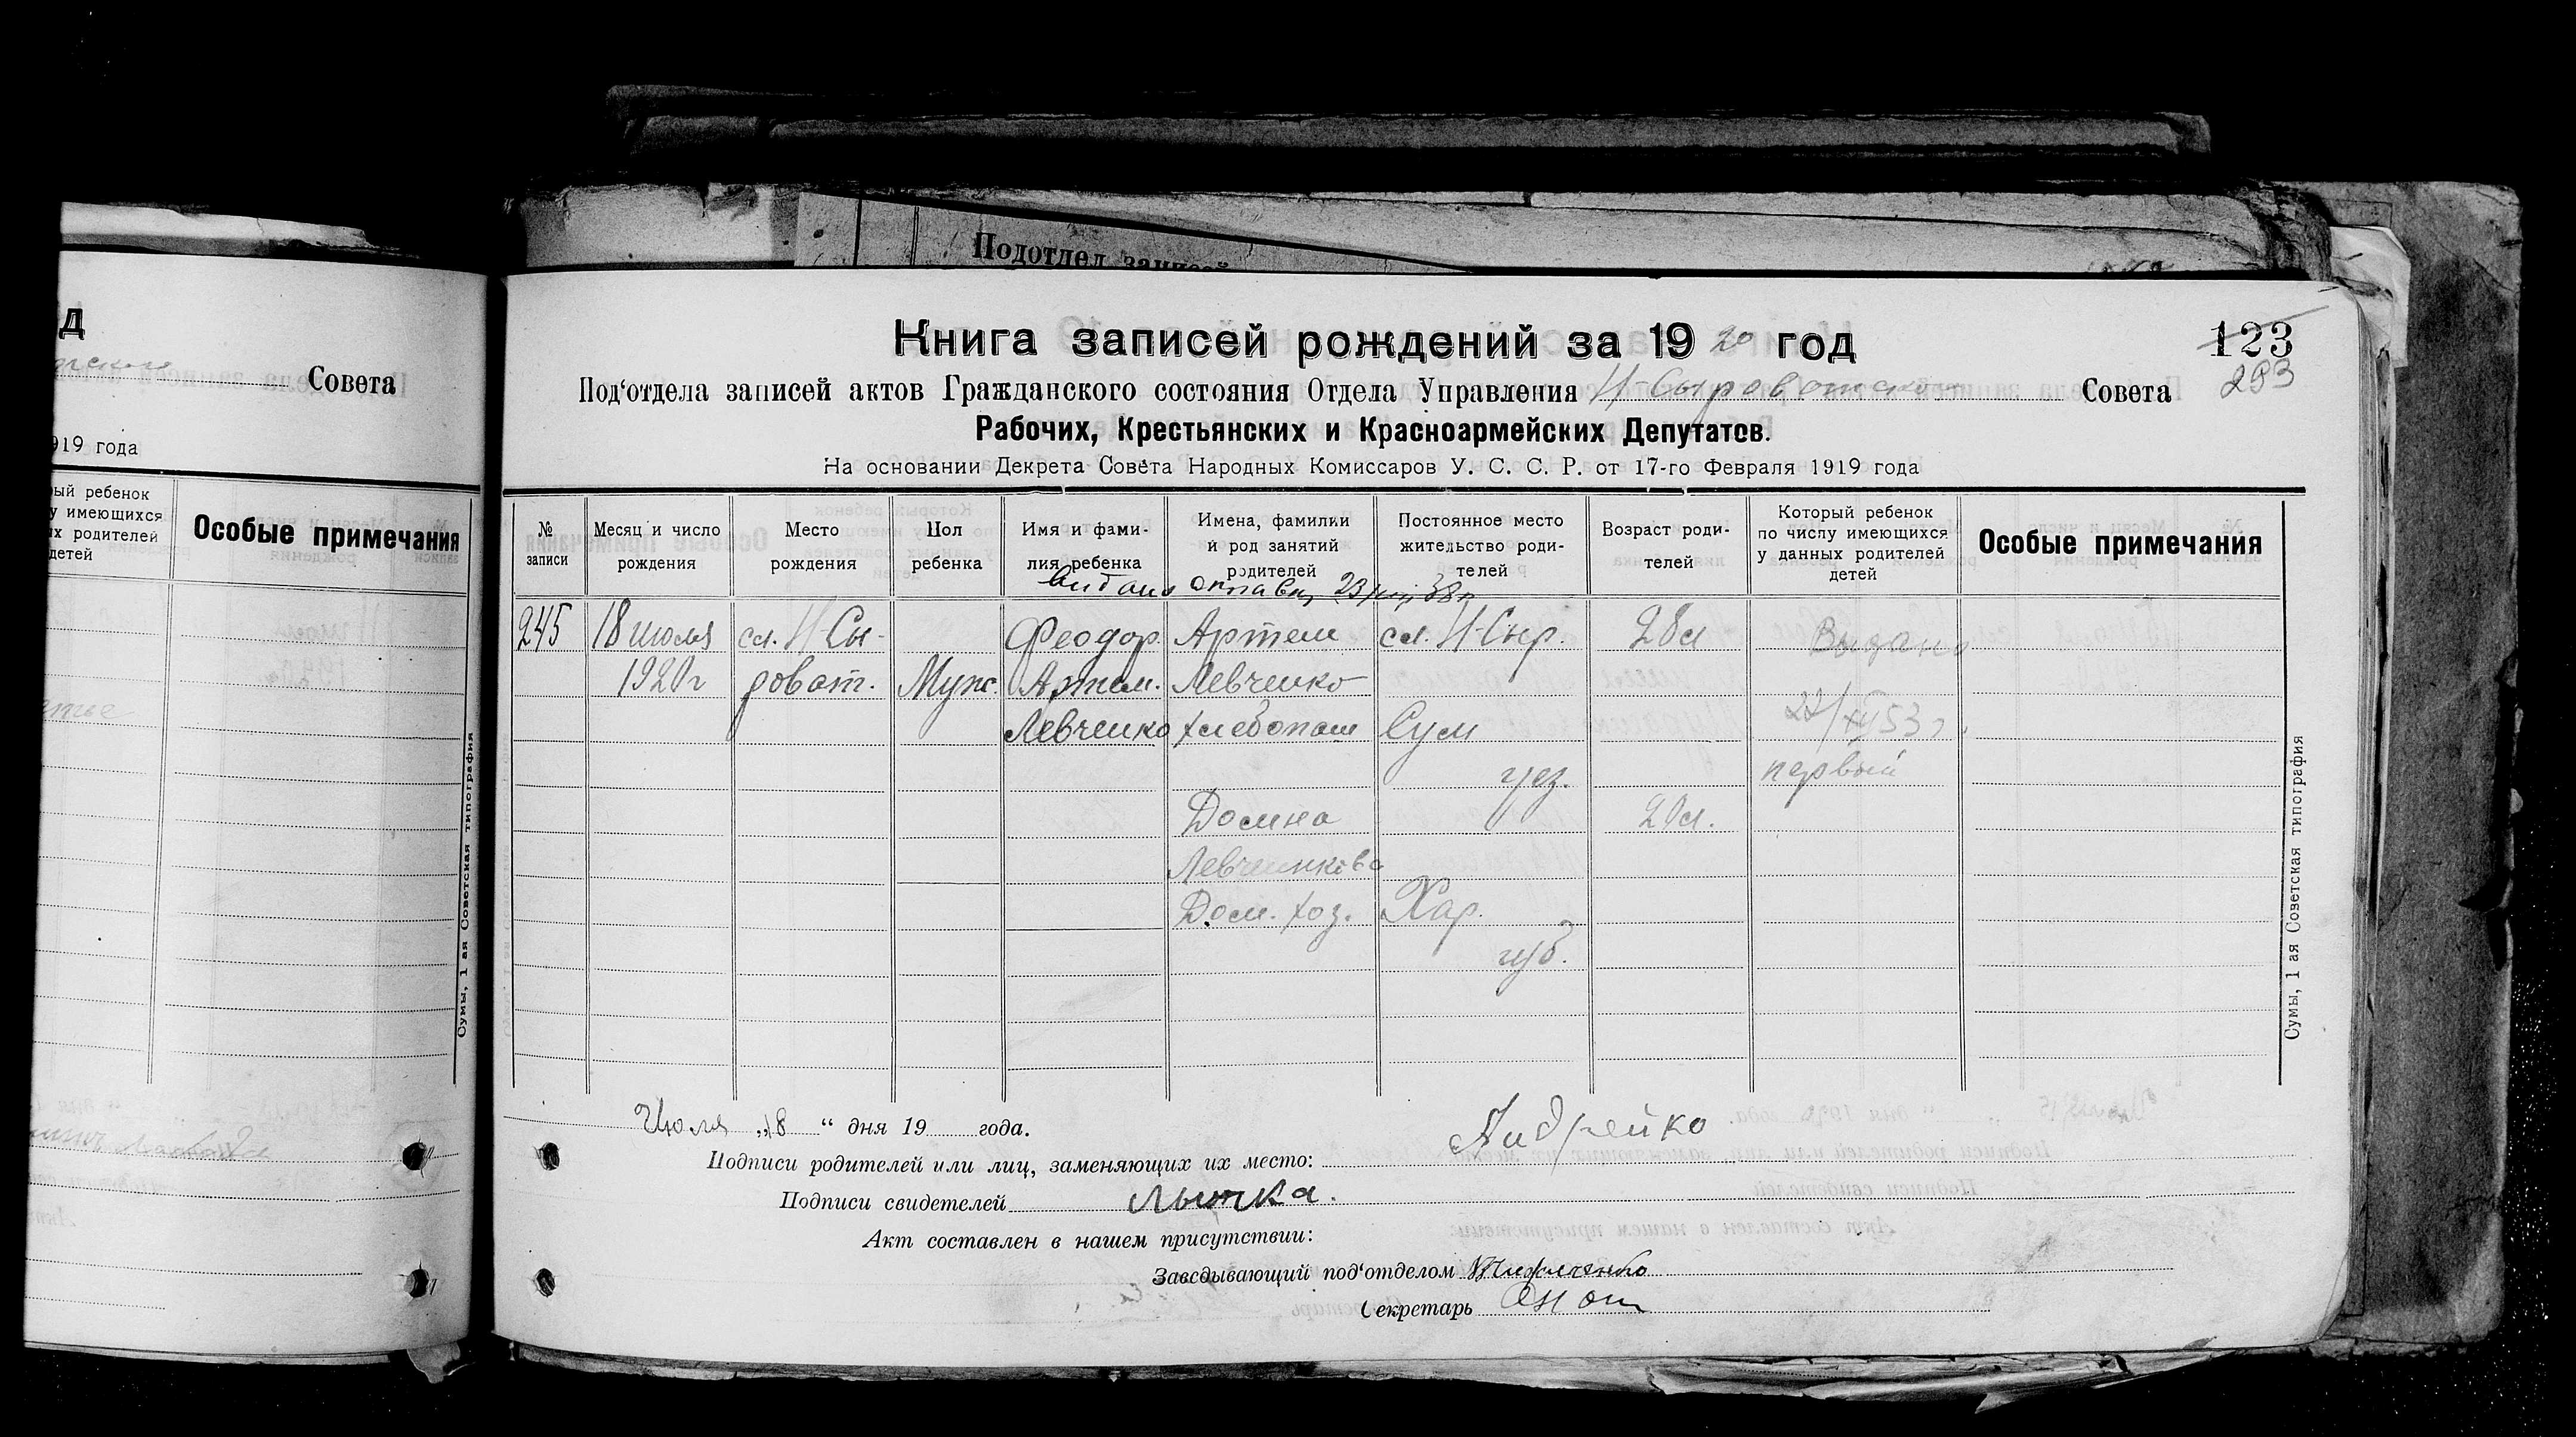 Подотдел записей
д
Совета
919 года
ый ребенок
у имеющихся
их родителей
детей
Особые примечания
Сумы, 1 ая Советская типография
Книга записей рождений за 1920 год
123
293
Под'отдела записей актов Гражданского состояния Отдела Управления Н-Сыроватского Совета
Рабочих, Крестьянских и Красноармейских Депутатов.
На основании Декрета Совета Народных Комиссаров У. С. С. Р. от 17-го Февраля 1919 года
№ записи
Месяц и число рождения
Место рождения
Пол ребенка
Имя и фами- лия ребенка
Имена, фамилии и род занятий родителей
Постоянное место жительство роди- телей
Возраст роди- телей
Который ребенок по числу имеющихся у данных родителей детей
Особые примечания
245 18 июля сл. Н-Сы- Феодор. Артем сл. Н-Сыр. 28л Выдано
1920г роват. Муж. Артем. Левченко
Левченко хлебопаш Сум 22/XII 53
уез. первый
Домна 20л.
Левченкова
Дом. хоз. Хар.
губ.
Сумы, 1 ая Советская типография
Июля „18 “ дня 19 года.
Андрейко
Подписи родителей или лиц, заменяющих их место:
Подписи свидетелей Лычка.
Акт составлен в нашем присутствии:
Заведывающий под'отделом
Секретарь